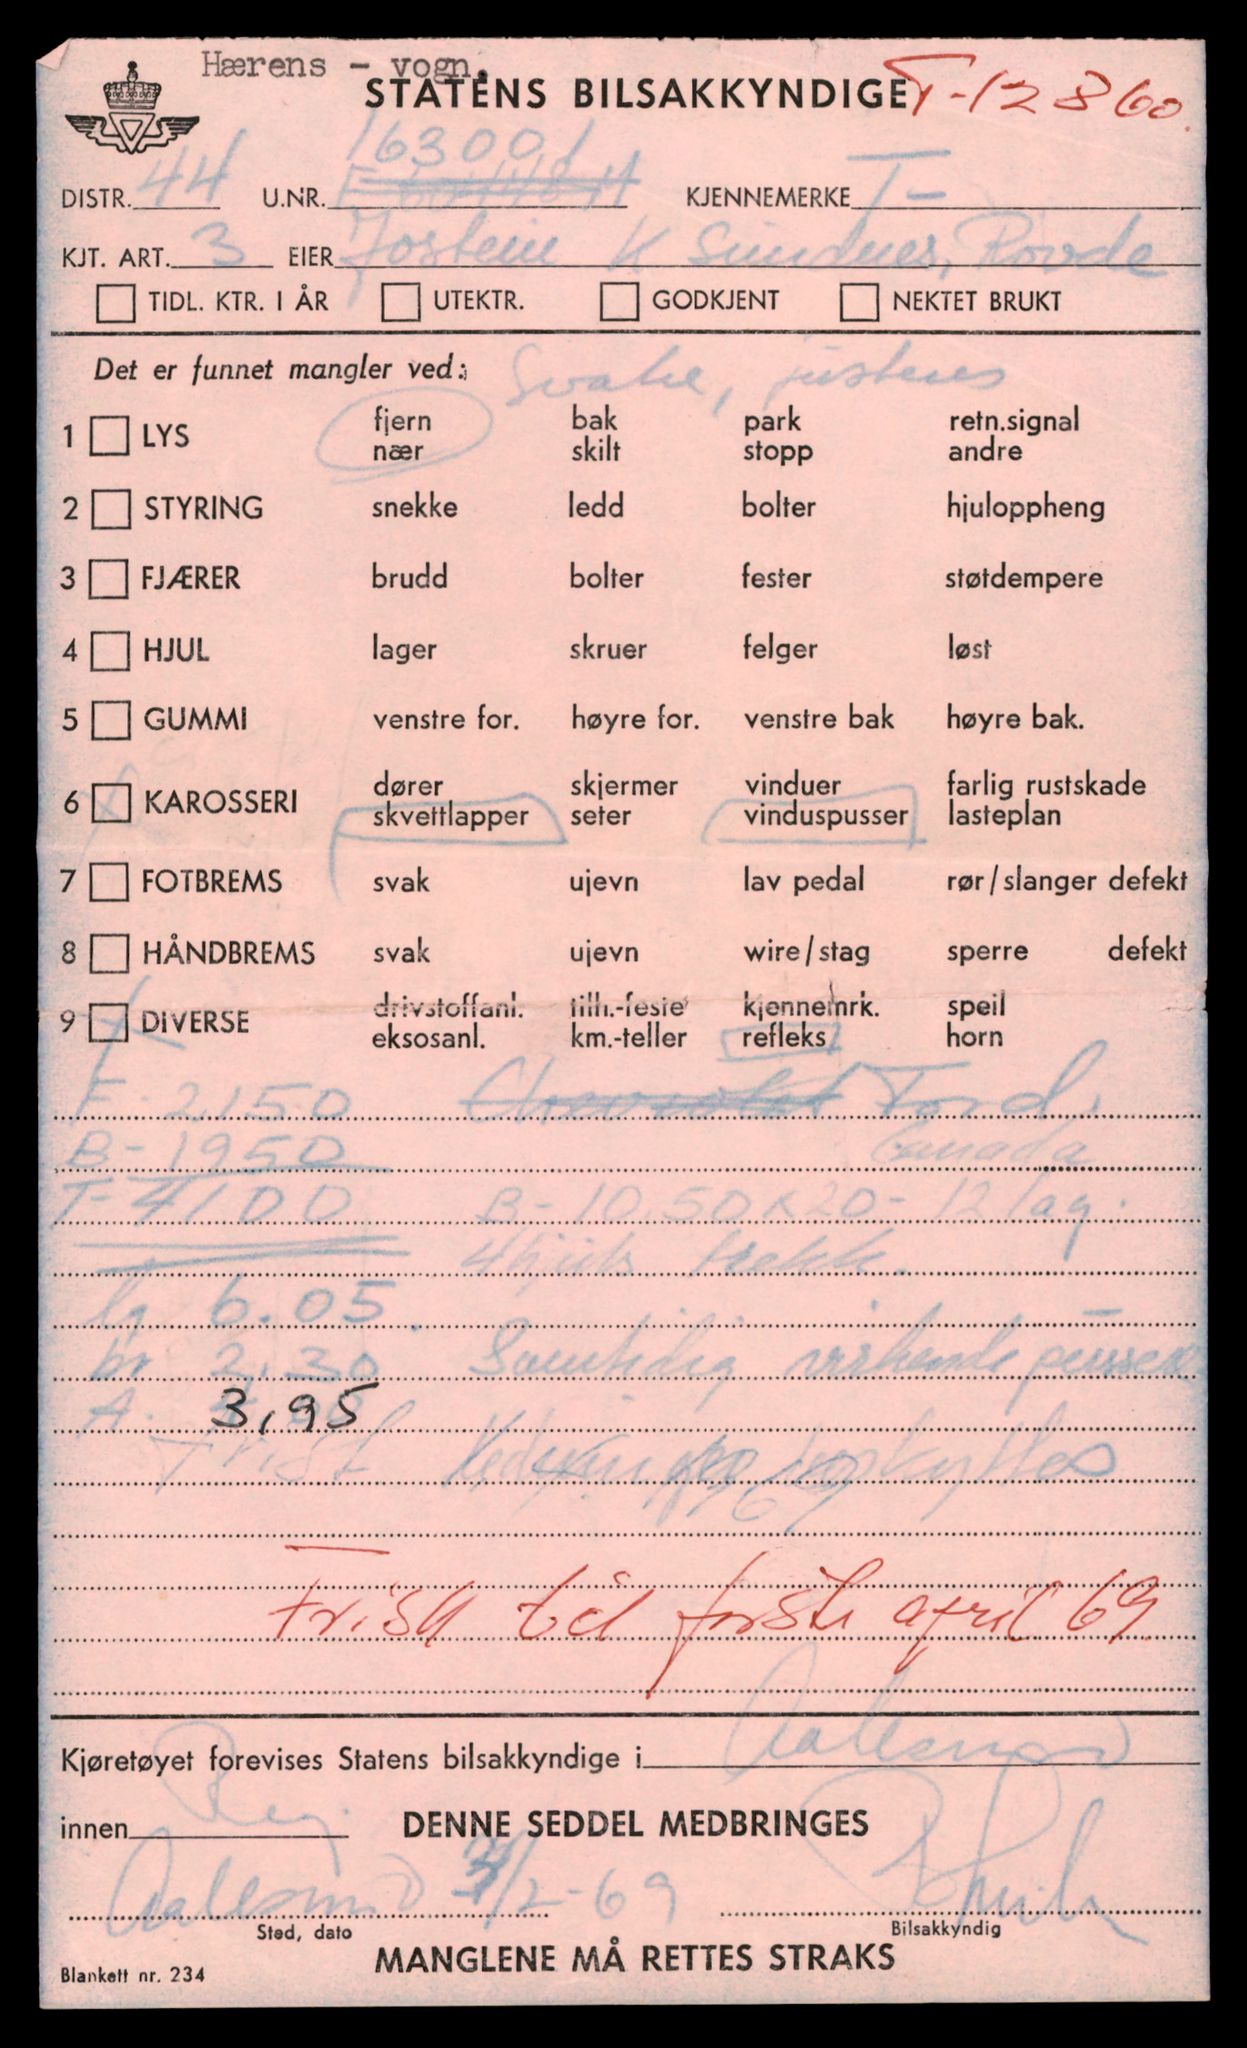 Hærens - vogn.
STATENS BILSAKKYNDIGE T-12860.
163001
DISTR. 44 U.NR. KJENNEMERKE T-
KJT. ART. 3 EIER Jostein K Sundnes, Rovde
TIDL. KTR. I ÅR UTEKTR. GODKJENT NEKTET BRUKT
Det er funnet mangler ved: Svake, justeres
1 LYS fjern bak park retn.signal
nær skilt stopp andre
2 STYRING snekke ledd bolter hjuloppheng
3 FJÆRER brudd bolter fester støtdempere
4 HJUL lager skruer felger løst
5 GUMMI venstre for. høyre for. venstre bak høyre bak.
6 KAROSSERI dører skjermer vinduer farlig rustskade
skvettlapper seter vinduspusser lasteplan
7 FOTBREMS svak ujevn lav pedal rør/slanger defekt
8 HÅNDBREMS svak ujevn wire/stag sperre defekt
9 DIVERSE drivstoffanl. tilh.-feste kjennemrk. speil
eksosanl. km.-teller refleks horn
F- 2150 Chevrolet Ford.
B- 1950 Canada
T- 4100 B- 10.50x20- 12 lag.
4hjuls trekk.
lg 6.05.
br 2,30 Samtidig virkende pusser
A. 3,95
Frist
Frisk til første april 69
Kjøretøyet forevises Statens bilsakkyndige i Aalesund
innen Reg. DENNE SEDDEL MEDBRINGES
Aalesund 3/2-69
Sted, dato Bilsakkyndig
MANGLENE MÅ RETTES STRAKS
Blankett nr. 234